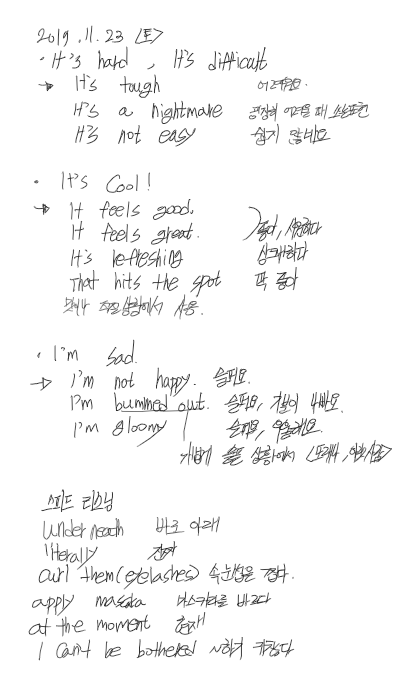 2019. 11. 23 (토)
· It's hard, It's difficult
→ It's tough 어려워요.
It's a nightmare 굉장히 어려울 때 쓰는표현
It's not easy 쉽지 않네요
· It's Cool!
→ It feels good.
It feels great. 좋아, 시원하다
It's refreshing 상쾌하다
That hits the spot 딱 좋아
상황에서 사용.
· I'm sad.
→ I'm not happy. 슬퍼요.
I'm bummed out. 슬퍼요, 기분이 나빠요.
I'm gloomy 슬퍼요, 우울해요.
가볍게 슬픈 상황에서
스피드 리스닝
Underneath 바로 아래
literally
curl them (eyelashes) 속눈썹을 집다.
apply mascara 마스카라를 바르다
at the moment 현재
I can't be bothered ~하기 귀찮다